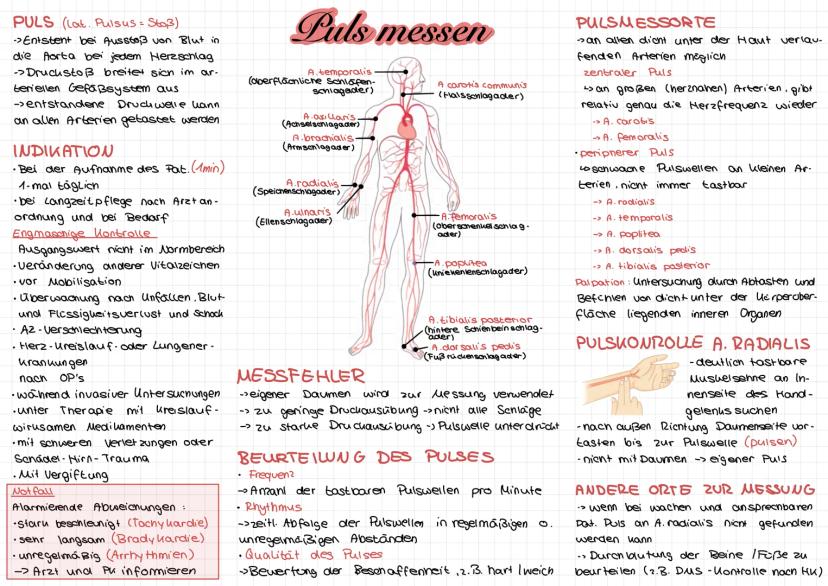 Puls messen
PULS (lat. Pulsus = Stoß)
->Entsteht bei Ausstoß von Blut in
die Aorta bei jedem Herzschlag
->Druckstoß breitet sich im ar-
teriellen Gefäßsystem aus
->entstandene Druckwelle kann
an allen Arterien getastet werden
INDIKATION
·Bei der Aufnahme des Pat. (1min)
1-mal täglich
·bei Langzeitpflege nach Arztan-
ordnung und bei Bedarf
Engmaschige Kontrolle
Ausgangswert nicht im Normbereich
·Veränderung anderer Vitalzeichen
·vor Mobilisation
·Überwachung nach Unfällen, Blut-
und Flüssigkeitsverlust und Schock
·AZ-Verschlechterung
·Herz-Kreislauf- oder Lungener-
krankungen
nach OP's
·während invasiver Untersuchungen
·unter Therapie mit Kreislauf-
wirksamen Medikamenten
·mit schweren Verletzungen oder
Schädel-Hirn-Trauma
·Mit Vergiftung
Notfall
Alarmierende Abweichungen:
·stark beschleunigt (Tachykardie)
·sehr langsam (Bradykardie)
·unregelmäßig (Arrhythmien)
-> Arzt und PK informieren
A. temporalis
(oberflächliche Schläfen-
schlagader)
A carotis communis
(Halsschlagader)
A. axillaris
(Achselschlagader)
A. brachialis
(Armschlagader)
A. radialis
(Speichenschlagader)
A. ulnaris
(Ellenschlagader)
A. femoralis
(Oberschenkelschlag-
ader)
A. poplitea
(Kniekehlenschlagader)
A. tibialis posterior
(hintere Schienbeinschlag-
ader)
A. dorsalis pedis
(Fußrückenschlagader)
MESSFEHLER
->eigener Daumen wird zur Messung verwendet
-> zu geringe Druckausübung -> nicht alle Schläge
-> zu starke Druckausübung -> Pulswelle unterdrückt
BEURTEILUNG DES PULSES
· Frequenz
-> Anzahl der tastbaren Pulswellen pro Minute
· Rhythmus
->zeitl. Abfolge der Pulswellen in regelmäßigen o.
unregelmäßigen Abständen
· Qualität des Pulses
->Bewertung der Beschaffenheit, z.B. hart/weich
PULSMESSORTE
->an allen dicht unter der Haut verlau-
fenden Arterien möglich
zentraler Puls
↳ an großen (herznahen) Arterien, gibt
relativ genau die Herzfrequenz wieder
-> A. carotis
-> A. femoralis
·peripherer Puls
↳schwache Pulswellen an kleinen Ar-
terien, nicht immer tastbar
-> A. radialis
-> A. temporalis
-> A. poplitea
-> A. dorsalis pedis
-> A. tibialis posterior
Palpation: Untersuchung durch Abtasten und
Befühlen von dicht unter der Körperober-
fläche liegenden inneren Organen
PULSKONTROLLE A. RADIALIS
-deutlich tastbare
Muskelsehne an In-
nenseite des Hand-
gelenks suchen
-nach außen Richtung Daumenseite vor-
tasten bis zur Pulswelle (pulsen)
-nicht mit Daumen -> eigener Puls
ANDERE ORTE ZUR MESSUNG
-> wenn bei wachen und ansprechbaren
Pat. Puls an A.radialis nicht gefunden
werden kann
-> Durchblutung der Beine/Füße zu
beurteilen (z.B. DMS-Kontrolle nach HK)